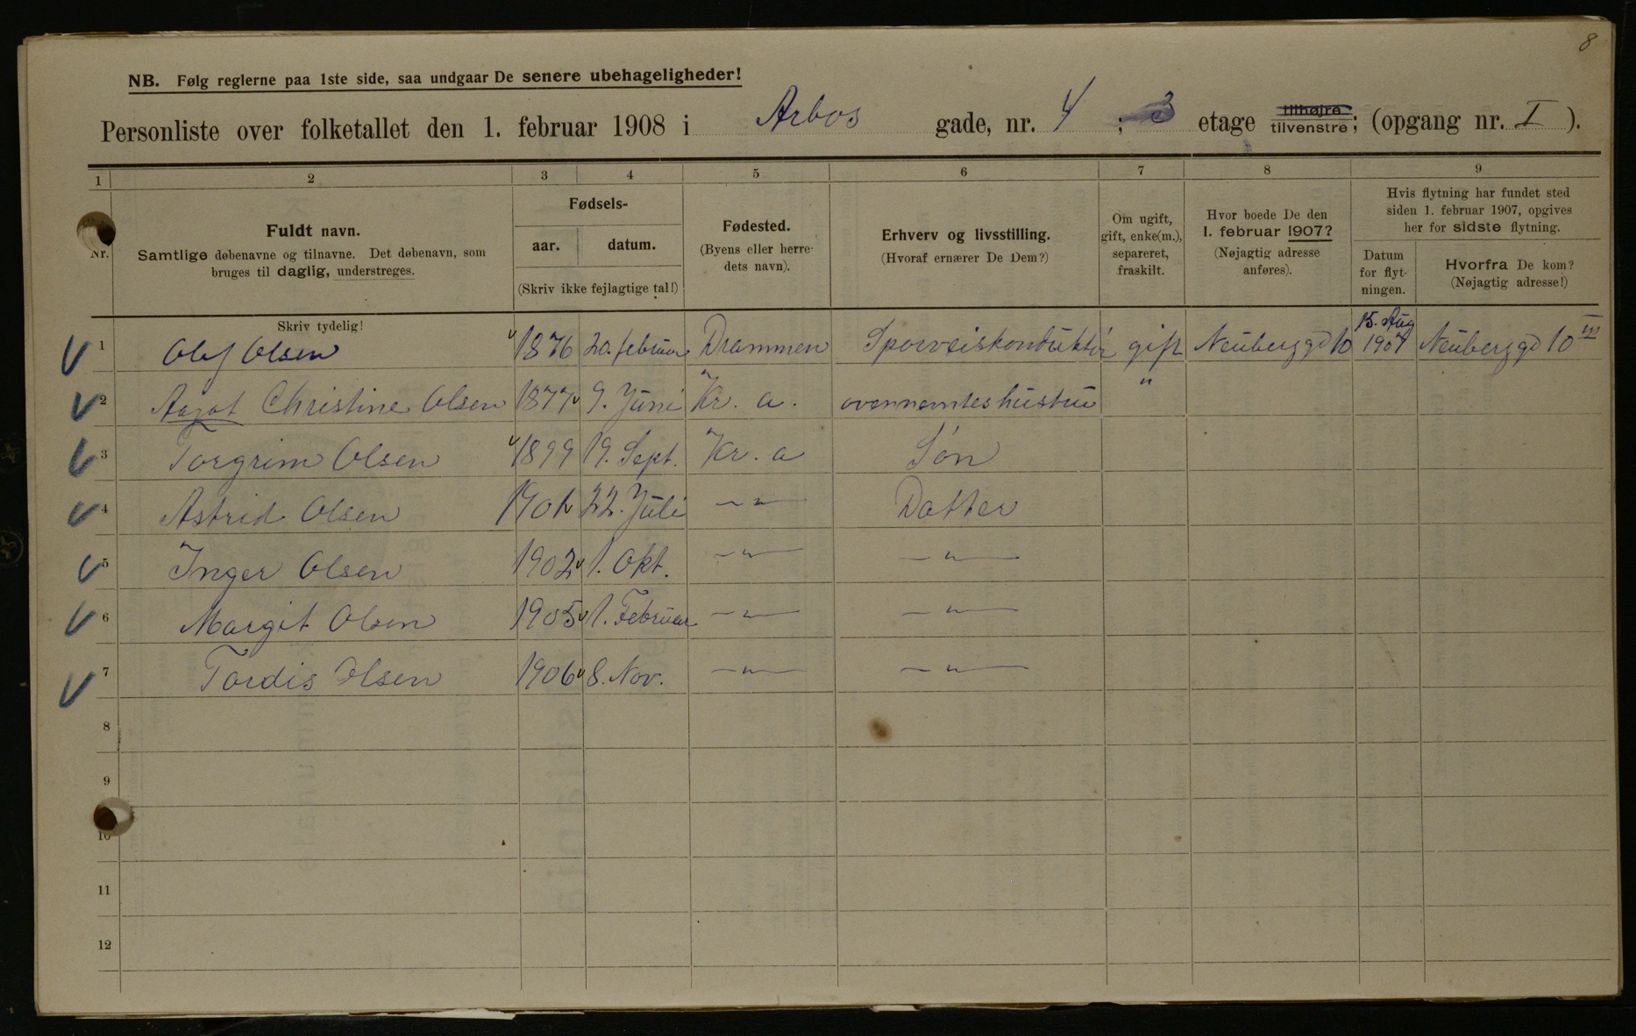 8
NB. Følg reglerne paa 1ste side, saa undgaar De senere ubehageligheder!
Personliste over folketallet den 1. februar 1908 i Arbos gade, nr. 4 ; 3 etage tilhøjre tilvenstre; (opgang nr. I ).
1 2 3 4 5 6 7 8 9
Nr.
Fuldt navn.
Samtlige døbenavne og tilnavne. Det døbenavn, som
bruges til daglig, understreges.
Skriv tydelig!
Fødsels-
aar. datum.
(Skriv ikke fejlagtige tal!)
Fødested.
(Byens eller herre-
dets navn).
Erhverv og livsstilling.
(Hvoraf ernærer De Dem?)
Om ugift,
gift, enke(m.),
separeret,
fraskilt.
Hvor boede De den
1. februar 1907?
(Nøjagtig adresse
anføres).
Hvis flytning har fundet sted
siden 1. februar 1907, opgives
her for sidste flytning.
Datum
for flyt-
ningen.
Hvorfra De kom?
(Nøjagtig adresse!)
1 Olaf Olsen 1876 20. februar Drammen Sporveiskonduktør gift Neuberggd 10 15. Aug 1907 Neuberggd 10 III
2 Aagot Christine Olsen 1877 9. Juni Kr. a. ovennævntes hustru "
3 Torgrim Olsen 1899 19. Sept. Kr. a Søn
4 Astrid Olsen 1901 22. Juli -"- Datter
5 Inger Olsen 1902 1. Okt. -"- -"-
6 Margit Olsen 1905 1. Februar -"- -"-
7 Tordis Olsen 1906 8. Nov. -"- -"-
8
9
10
11
12